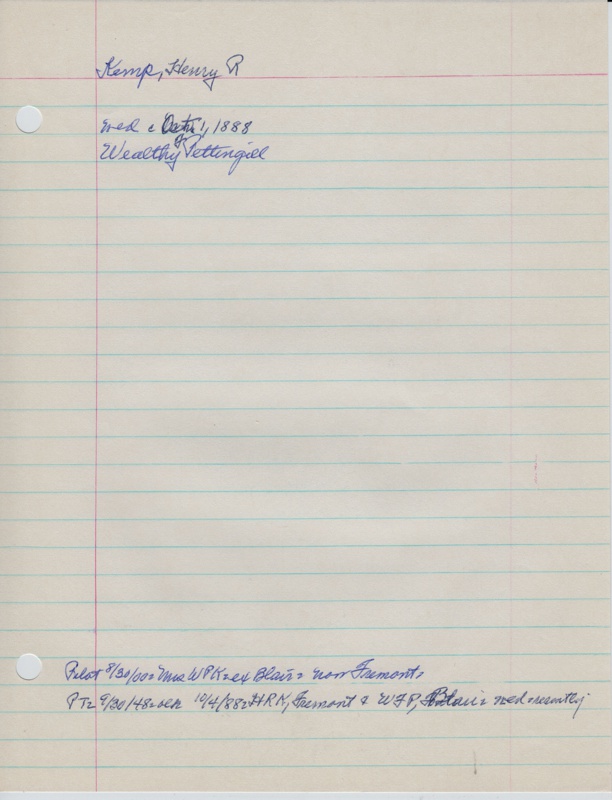 Kemp, Henry R
wed c Oct 1, 1888
Wealthy Pettingill
Pilot 8/30/00= Mrs WPK= ex Blair= now Fremont=
PT= 9/20/48= 10/4/88= HRK, Fremont & WFP, Blair= wed recently